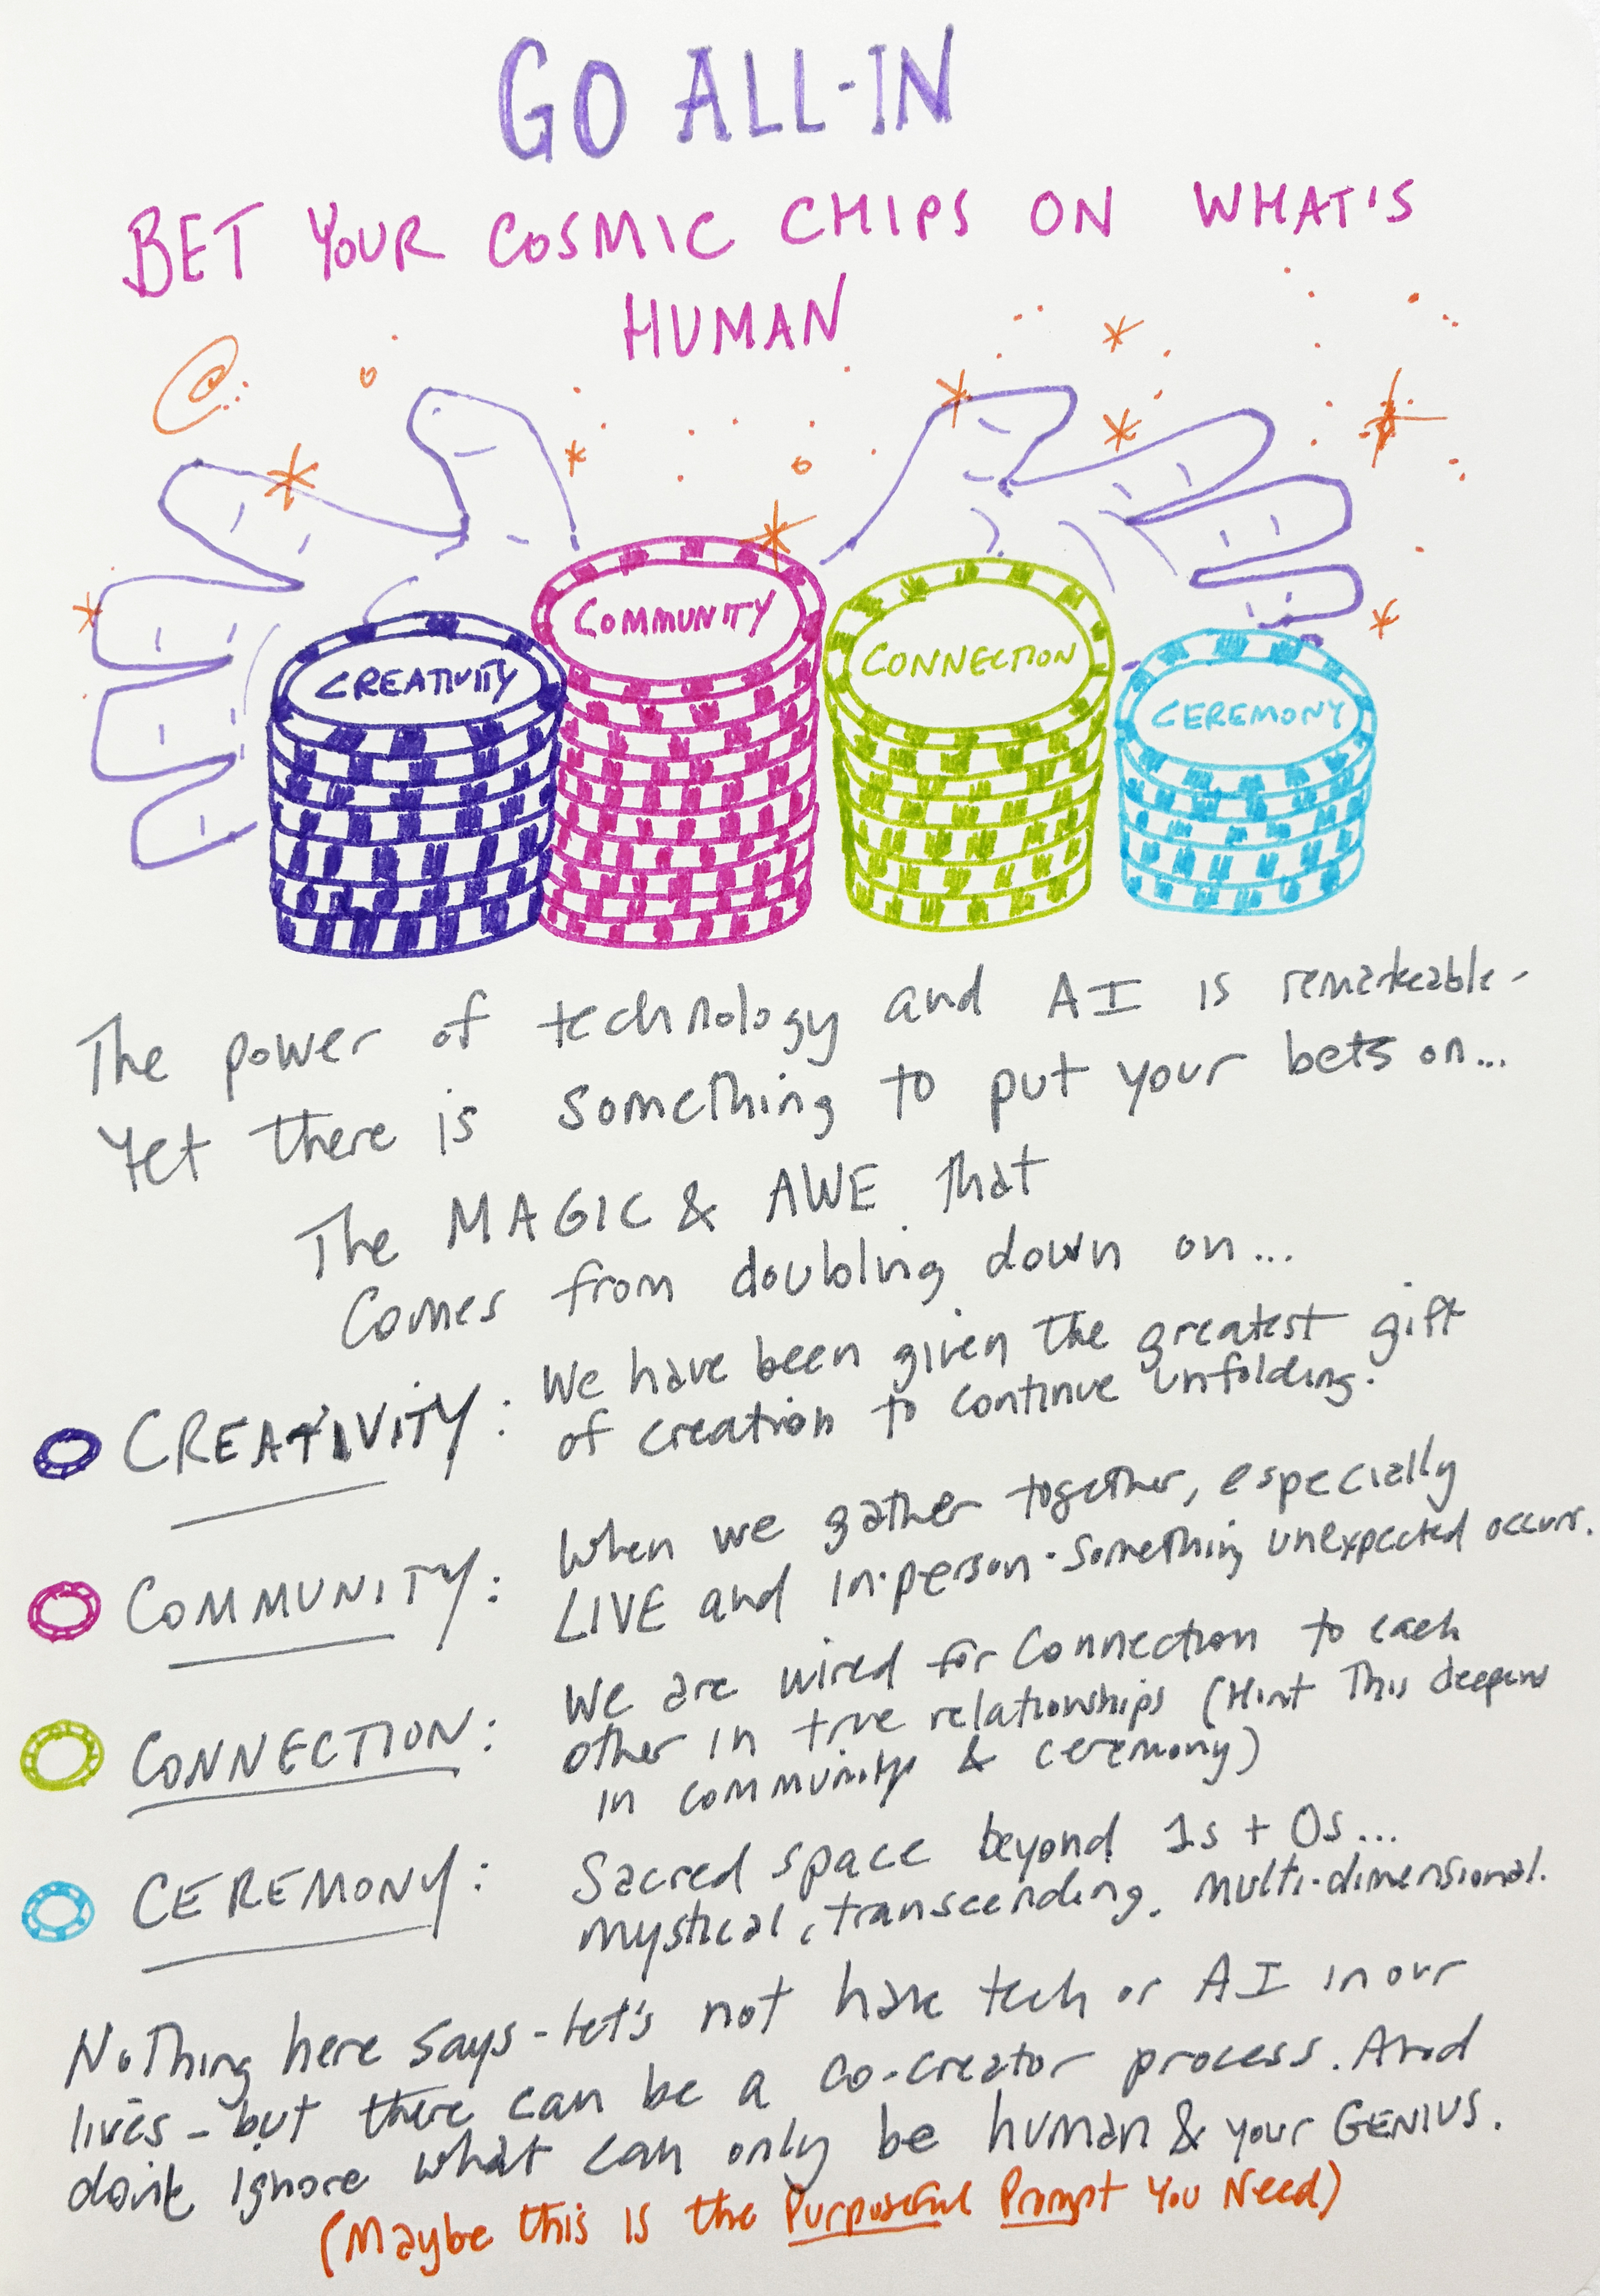 GO ALL-IN
BET YOUR COSMIC CHIPS ON WHAT'S
HUMAN
CREATIVITY
COMMUNITY
CONNECTION
CEREMONY
The power of technology and AI is remarkeable-
Yet there is something to put your bets on...
The MAGIC & AWE that
comes from doubling down on...
CREATIVITY: We have been given the greatest gift
of creation to continue unfolding.
COMMUNITY: When we gather together, especially
LIVE and in-person - something unexpected occurs.
CONNECTION: We are wired for connection to each
other in true relationships (Hint This deepens
in community & ceremony)
CEREMONY: Sacred space beyond 1s + 0s...
mystical, transcending, multi-dimensional.
Nothing here says - let's not have tech or AI in our
lives - but there can be a co-creator process. And
don't ignore what can only be human & your GENIUS.
(Maybe this is the Purposeful Prompt You Need)